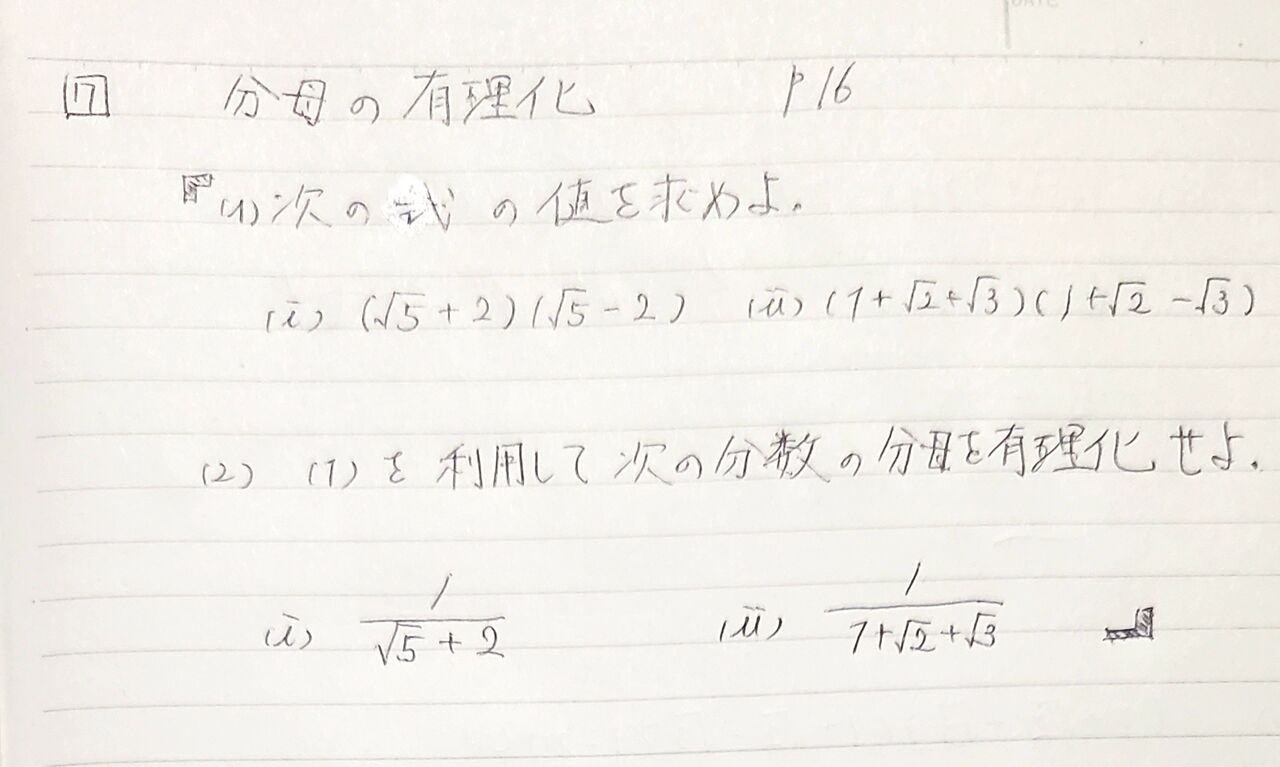 DATE
17 分母の有理化 p16
『(1)次の式の値を求めよ。
(i) (√5+2)(√5-2) (ii) (1+√2+√3)(1+√2-√3)
(2) (1)を利用して次の分数の分母を有理化せよ。
(i) 1/(√5+2) (ii) 1/(1+√2+√3) 』